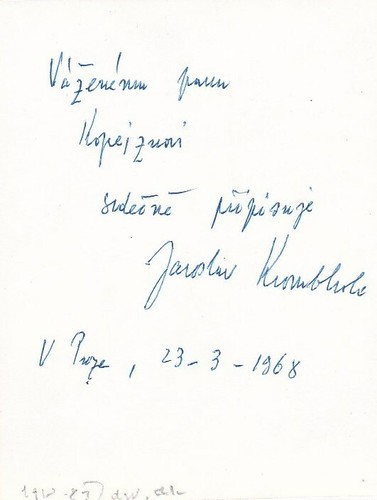 Váženému panu
Kopejznovi
srdečně připisuje
Jaroslav Krombholc
V Praze, 23-3-1968
1918-83